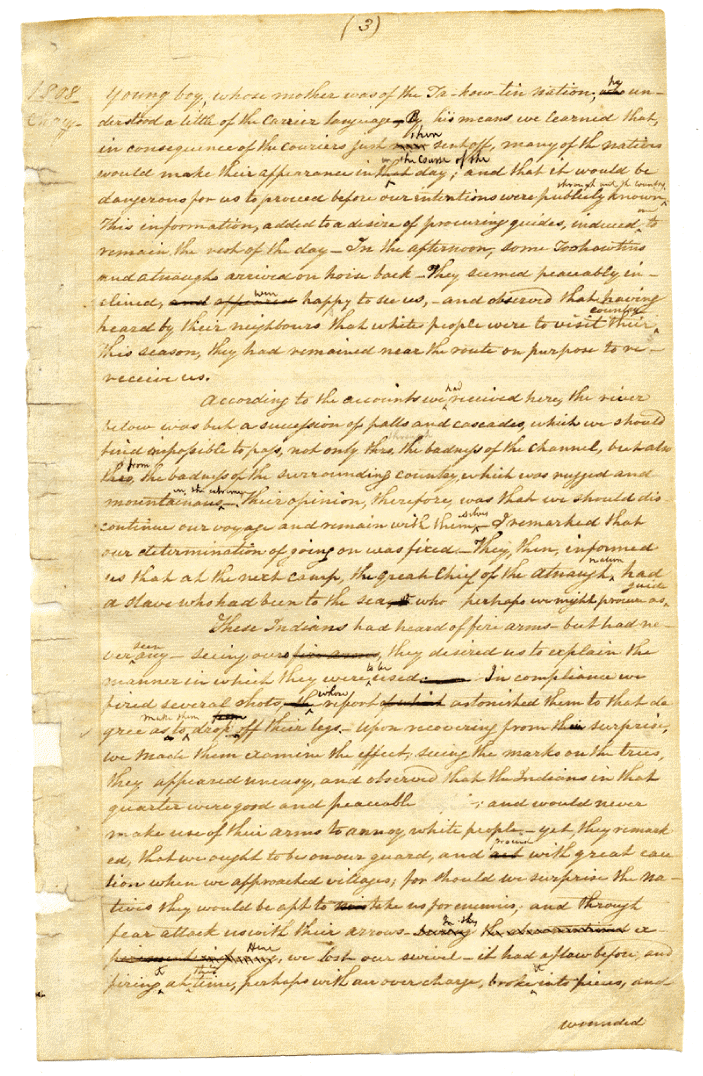 (3)
1808
young boy, whose mother was of the Ta-kow-tin nation, who he un-
derstood a little of the Carrier language - By his means we learned that,
in consequence of the Couriers just now sent off, many of the natives
in the course of the
would make their appearance in that day; and that it would be
through out the country
dangerous for us to proceed before our intentions were publicly known
This information, added to a desire of procuring guides, induced us to
remain the rest of the day - In the afternoon, some Toohowtins
and atnaughs arrived on horse back - They seemed peaceably in-
clined, and appeared were happy to see us, - and observed that having
country
heard by their neighbours that white people were to visit their
this season, they had remained near the route on purpose to re-
receive us.
According to the accounts we had received here, the river
below was but a succession of falls and cascades, which we should
find impossible to pass, not only thro, the badness of the channel, but also
from
thro, the badness of the surrounding country, which was rugged and
in the extreme
mountainous - Their opinion, therefore, was that we should dis
continue our voyage and remain with them - I remarked that
our determination of going on was fixed - They, then, informed
nation
us that at the next camp, the great Chief of the atnaugh had
guide
a slave who had been to the sea, & who perhaps we might procure as
These Indians had heard of fire arms - but had ne
ver seen any - seeing ours fire arms, they desired us to explain the
manner in which they were to be used In compliance we
fired several shots, whose report of which astonished them to that de
make them
gree as to drop off their legs - upon recovering from their surprise,
we made them examine the effect, seeing the marks on the trees,
they appeared uneasy, and observed that the Indians in that
quarter were good and peaceable ; and would never
make use of their arms to annoy white people - yet, they remark
ed, that we ought to be on our guard, and act proceed with great cau
tion when we approached villages; for should we surprise the na-
tives they would be apt to take us for enemies, and through
fear attack us with their arrows -
Here, we lost our swivel - it had a flaw before, and
firing it at this time, perhaps with an over charge, broke it into pieces, and
wounded